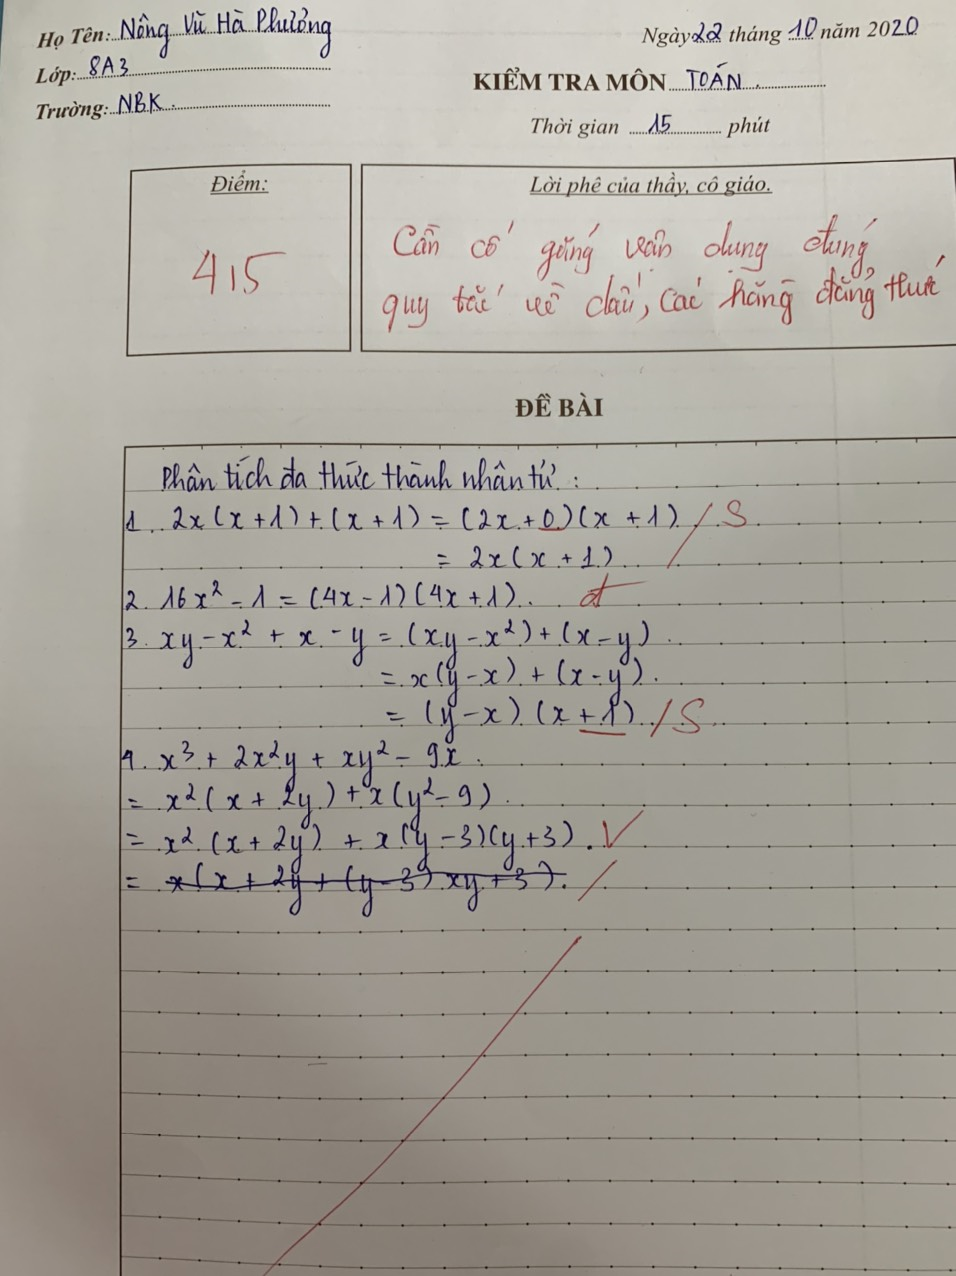 Họ Tên: Nông Vũ Hà Phương
Ngày 22 tháng 10 năm 2020
Lớp: 8A3
KIỂM TRA MÔN TOÁN
Trường: NBK
Thời gian 15 phút
Điểm:
4,5
Lời phê của thầy, cô giáo.
Cần cố gắng vận dụng đúng
quy tắc về dấu, các hằng đẳng thức
ĐỀ BÀI
Phân tích đa thức thành nhân tử :
1. 2x(x+1)+(x+1) = (2x+0)(x+1) / S
= 2x(x+1)
2. 16x² - 1 = (4x-1)(4x+1). đ
3. xy - x² + x - y = (xy - x²) + (x - y)
= x(y-x) + (x-y).
= (y-x)(x+1) / S
4. x³ + 2x²y + xy² - 9x
= x²(x+2y) + x(y²-9)
= x²(x+2y) + x(y-3)(y+3). V
= x(x+2y+(y-3)xy+3). /